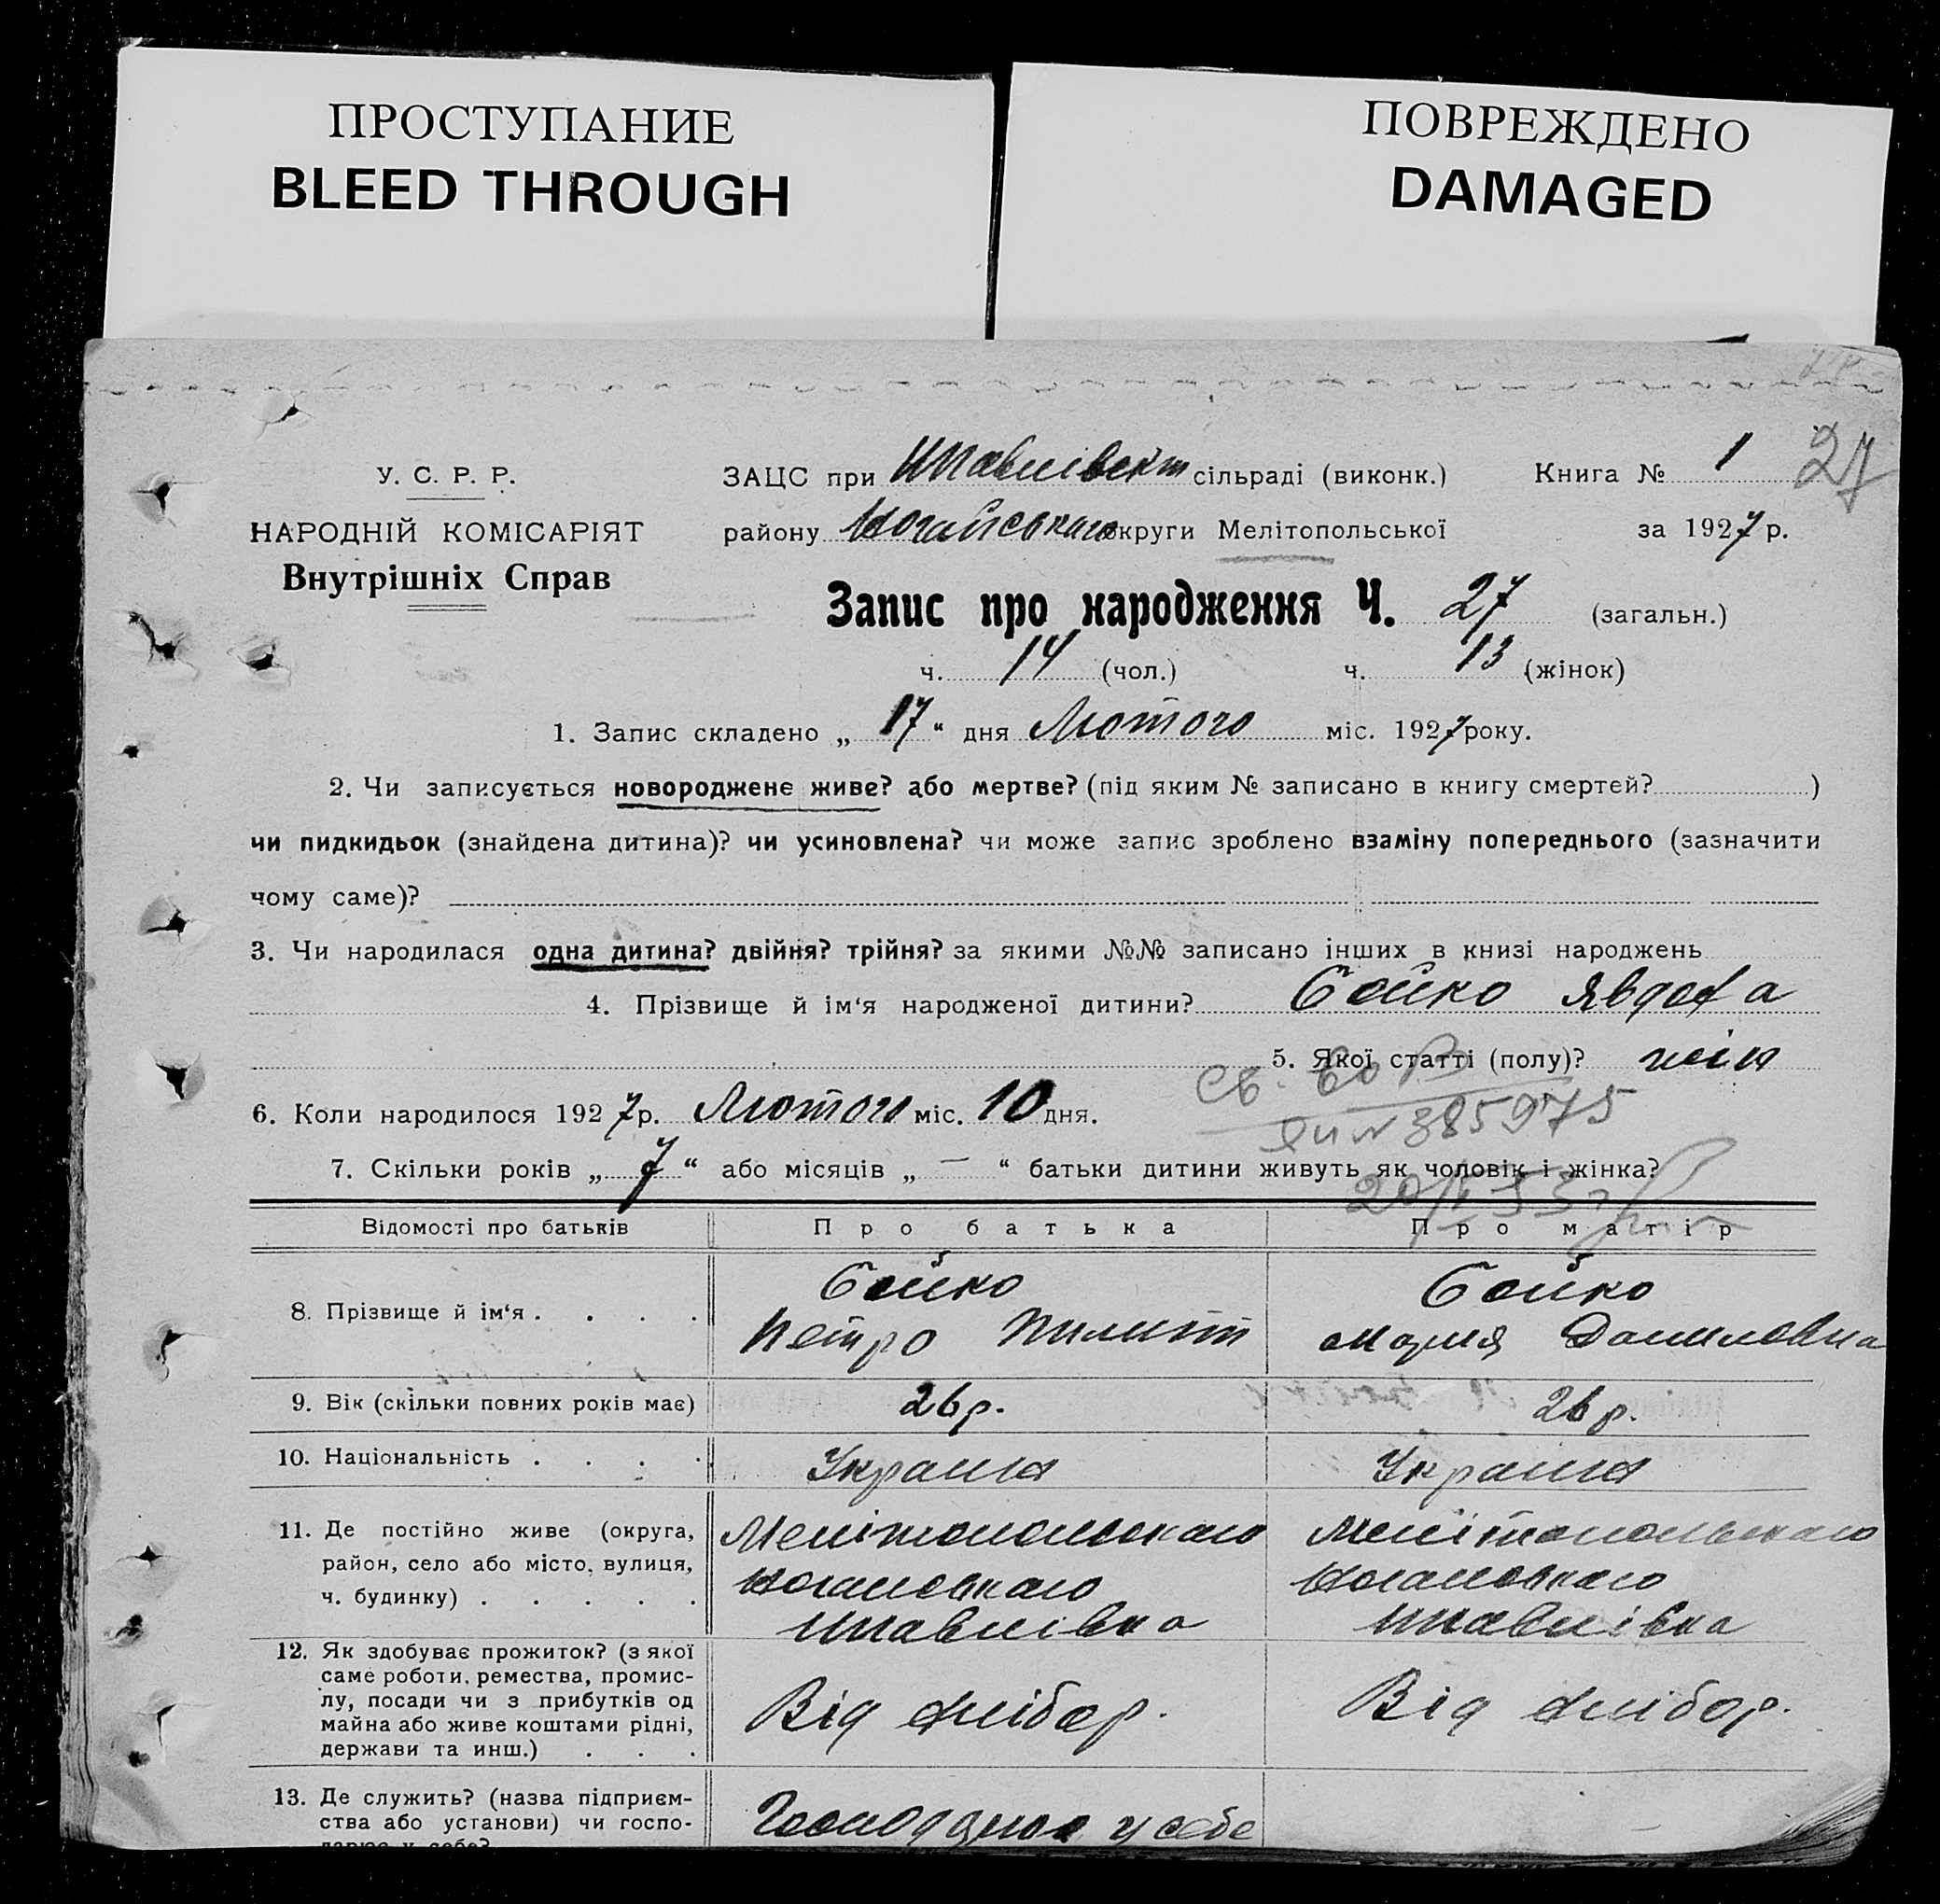 ПРОСТУПАНИЕ
BLEED THROUGH
ПОВРЕЖДЕНО
DAMAGED
У. С. Р. Р.
НАРОДНІЙ КОМІСАРІЯТ
Внутрішніх Справ
ЗАЦС при сільраді (виконк.) Книга № 1 27
району Ногайського округи Мелітопольської за 1927 р.
Запис про народження Ч. 27 (загальн.)
ч. 14 (чол.) ч. 13 (жінок)
1. Запис складено „ 17 “ дня Лютого міс. 1927 року.
2. Чи записується новороджене живе? або мертве? (під яким № записано в книгу смертей? )
чи пидкидьок (знайдена дитина)? чи усиновлена? чи може запис зроблено взаміну попереднього (зазначити
чому саме)?
3. Чи народилася одна дитина? двійня? трійня? за якими №№ записано інших в книзі народжень
4. Прізвище й ім‘я народженої дитини? Бойко Явдоха
5. Якої статті (полу)? жін
6. Коли народилося 1927 р. Лютого міс. 10 дня.
385975
7. Скільки років „ 7 “ або місяців „ — “ батьки дитини живуть як чоловік і жінка?
Відомості про батьків Про батька Про матір
8. Прізвище й ім‘я . . . . Бойко Бойко
Петро Пилипп Мария Даниловна
9. Вік (скільки повних років має) 26 р. 26 р.
10. Національність . . . . Украина Украина
11. Де постійно живе (округа, Мелітопольскаго Мелітопольскаго
район, село або місто, вулиця, Ногайскаго Ногайскаго
ч. будинку) . . . . .
12. Як здобуває прожиток? (з якої
саме роботи, ремества, промис-
лу, посади чи з прибутків од Від хлібор. Від хлібор.
майна або живе коштами рідні,
держави та инш.) . . .
13. Де служить? (назва підприєм-
ства або установи) чи госпо- у себе
дарює у себе?